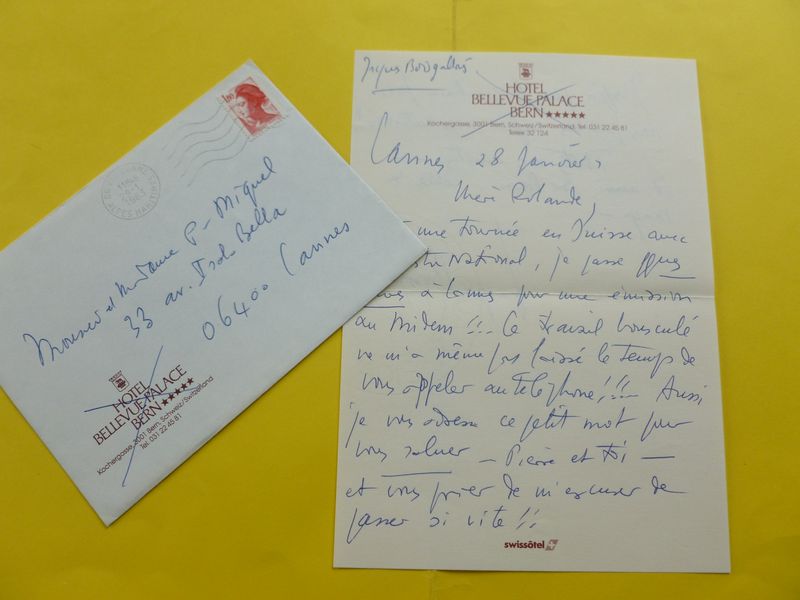 1,80
Monsieur et Madame P. Miquel
33 av. Isola Bella
06400 Cannes
HOTEL
BELLEVUE PALACE
BERN ★★★★★
Kochergasse, 3001 Bern, Schweiz/Switzerland
Tel. 031 22 45 81
Jacques
HOTEL
BELLEVUE PALACE
BERN ★★★★★
Kochergasse, 3001 Bern, Schweiz/Switzerland, Tel. 031 22 45 81
Telex 32 124
Cannes 28 janvier
Chère Rolande,
une tournée en Suisse avec
National, je passe qques
à Cannes pour une émission
au Midem !!! Ce travail bousculé
ne m'a même pas laissé le temps de
vous appeler au téléphone !!! Aussi,
je vous adresse ce petit mot pour
vous saluer — Pierre et toi —
et vous prier de m'excuser de
passer si vite !!
swissôtel